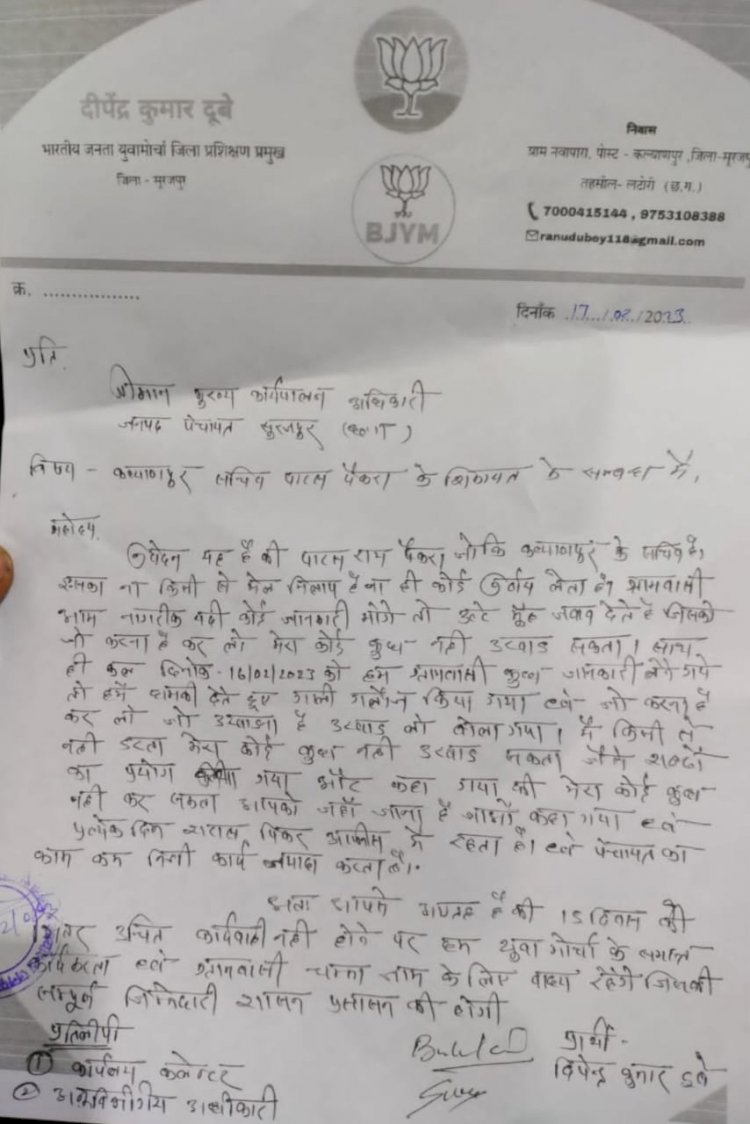 दीपेंद्र कुमार दूबे
भारतीय जनता युवामोर्चा जिला प्रशिक्षण प्रमुख
जिला - सूरजपुर
BJYM
निवास
ग्राम नवापारा, पोस्ट - कल्याणपुर ,जिला-सूरजपु
तहसील- लटोरी (छ.ग.)
7000415144 , 9753108388
ranudubey118@gmail.com
क्र. ..................
दिनाँक 17/02/2023
प्रति,
श्रीमान मुख्य कार्यपालन अधिकारी
जनपद पंचायत सुरजपुर
विषय - कल्याणपुर सचिव पारस पैकरा के शिकायत के सम्बन्ध में,
महोदय,
निवेदन यह है की पारस राम पैकरा जोकि कल्याणपुर के सचिव है,
इसका ना किसी से मेल मिलाप है ना ही कोई निर्णय लेता है। ग्रामवासी
आम नागरीक यदी कोई जानकारी मांगे तो उल्टे मुँह जवाब देते है जिसको
जो करना है कर लो मेरा कोई कुछ नही उखाड सकता। साथ
ही कल दिनाँक - 16/02/2023 को हम ग्रामवासी कुछ जानकारी लेने गये
तो हमें धमकी देते हुए गाली गलौज किया गया एवं जो करना है
कर लो जो उखाडना है उखाड लो बोला गया। मैं किसी से
नही डरता मेरा कोई कुछ नही उखाड सकता जैसे शब्दों
का प्रयोग किया गया और कहा गया की मेरा कोई कुछ
नही कर सकता आपको जहाँ जाना है जाओ कहा गया एवं
प्रत्येक दिन शराब पिकर आफीस में रहता है। एवं पंचायत का
काम कम निजी कार्य ज्यादा करता है।
अतः आपसे आग्रह है की 15 दिवस के
भितर उचित कार्यवाही नही होने पर हम युवा मोर्चा के समस्त
कार्यकर्ता एवं ग्रामवासी चक्का जाम के लिए बाध्य रहेंगे जिसकी
सम्पूर्ण जिम्मेदारी शासन प्रशासन की होगी
प्रतिलीपी
① कार्यालय कलेक्टर
② अनुविभागीय अधीकारी
प्रार्थी-
दिपेन्द्र कुमार दुबे